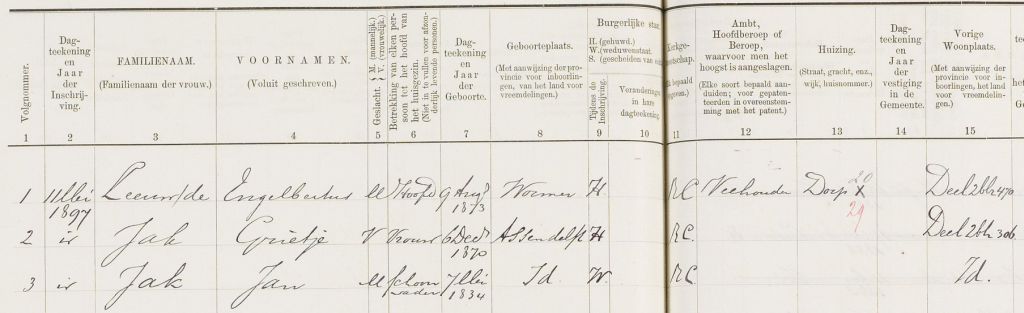 Volgnommer.
Dag-
teekening
en
Jaar
der
Inschrij-
ving.
FAMILIENAAM.
(Familienaam der vrouw.)
VOORNAMEN.
(Voluit geschreven.)
Geslacht { M. (mannelijk.) V. (vrouwelijk.)
Betrekking van elken per-
soon tot het hoofd van
het huisgezin.
(Niet in te vullen voor afzon-
derlijk levende personen.)
Dag-
teekening
en
Jaar
der
Geboorte.
Geboorteplaats.
(Met aanwijzing der pro-
vincie voor inboorlin-
gen, van het land voor
vreemdelingen.)
Burgerlijke staat
H. (gehuwd.)
W. weduwenstaat.
S. (gescheiden van
Tijdens de
Inschrijving.
Veranderingen
in hare
dagteekening
Kerkge-
nootschap.
bepaald
Ambt,
Hoofdberoep of
Beroep,
waarvoor men het
hoogst is aangeslagen.
(Elke soort bepaald aan-
duiden; voor gepaten-
teerden in overeenstem-
ming met het patent.)
Huizing.
(Straat, gracht, enz.,
wijk, huisnommer.)
Dag-
teekening
en
Jaar
der
vestiging
in de
Gemeente.
Vorige
Woonplaats.
(Met aanwijzing der
provincie voor in-
boorlingen, het land
voor vreemdelin-
gen.)
1 2 3 4 5 6 7 8 9 10 11 12 13 14 15
1 11 Mei 1897 Leeuw/de Engelbertus M Hoofd 9 Aug 1873 Wormer H RC Veehouder Dorp X 20 29 Deel 2 blz 470
2 id Jak Grietje V Vrouw 6 Dec 1870 Assendelft H RC. Deel 2 blz 306
3 id Jak Jan M schoon vader 7 Mei 1834 Id. W. RC Id.